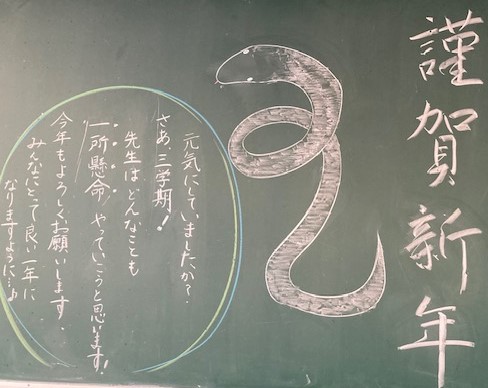 謹賀新年
元気にしていましたか？
さあ、三学期！
先生は、どんなことも
一所懸命、やっていこうと思います！
今年もよろしくお願いします。
みんなにとって良い一年に
なりますように…♪